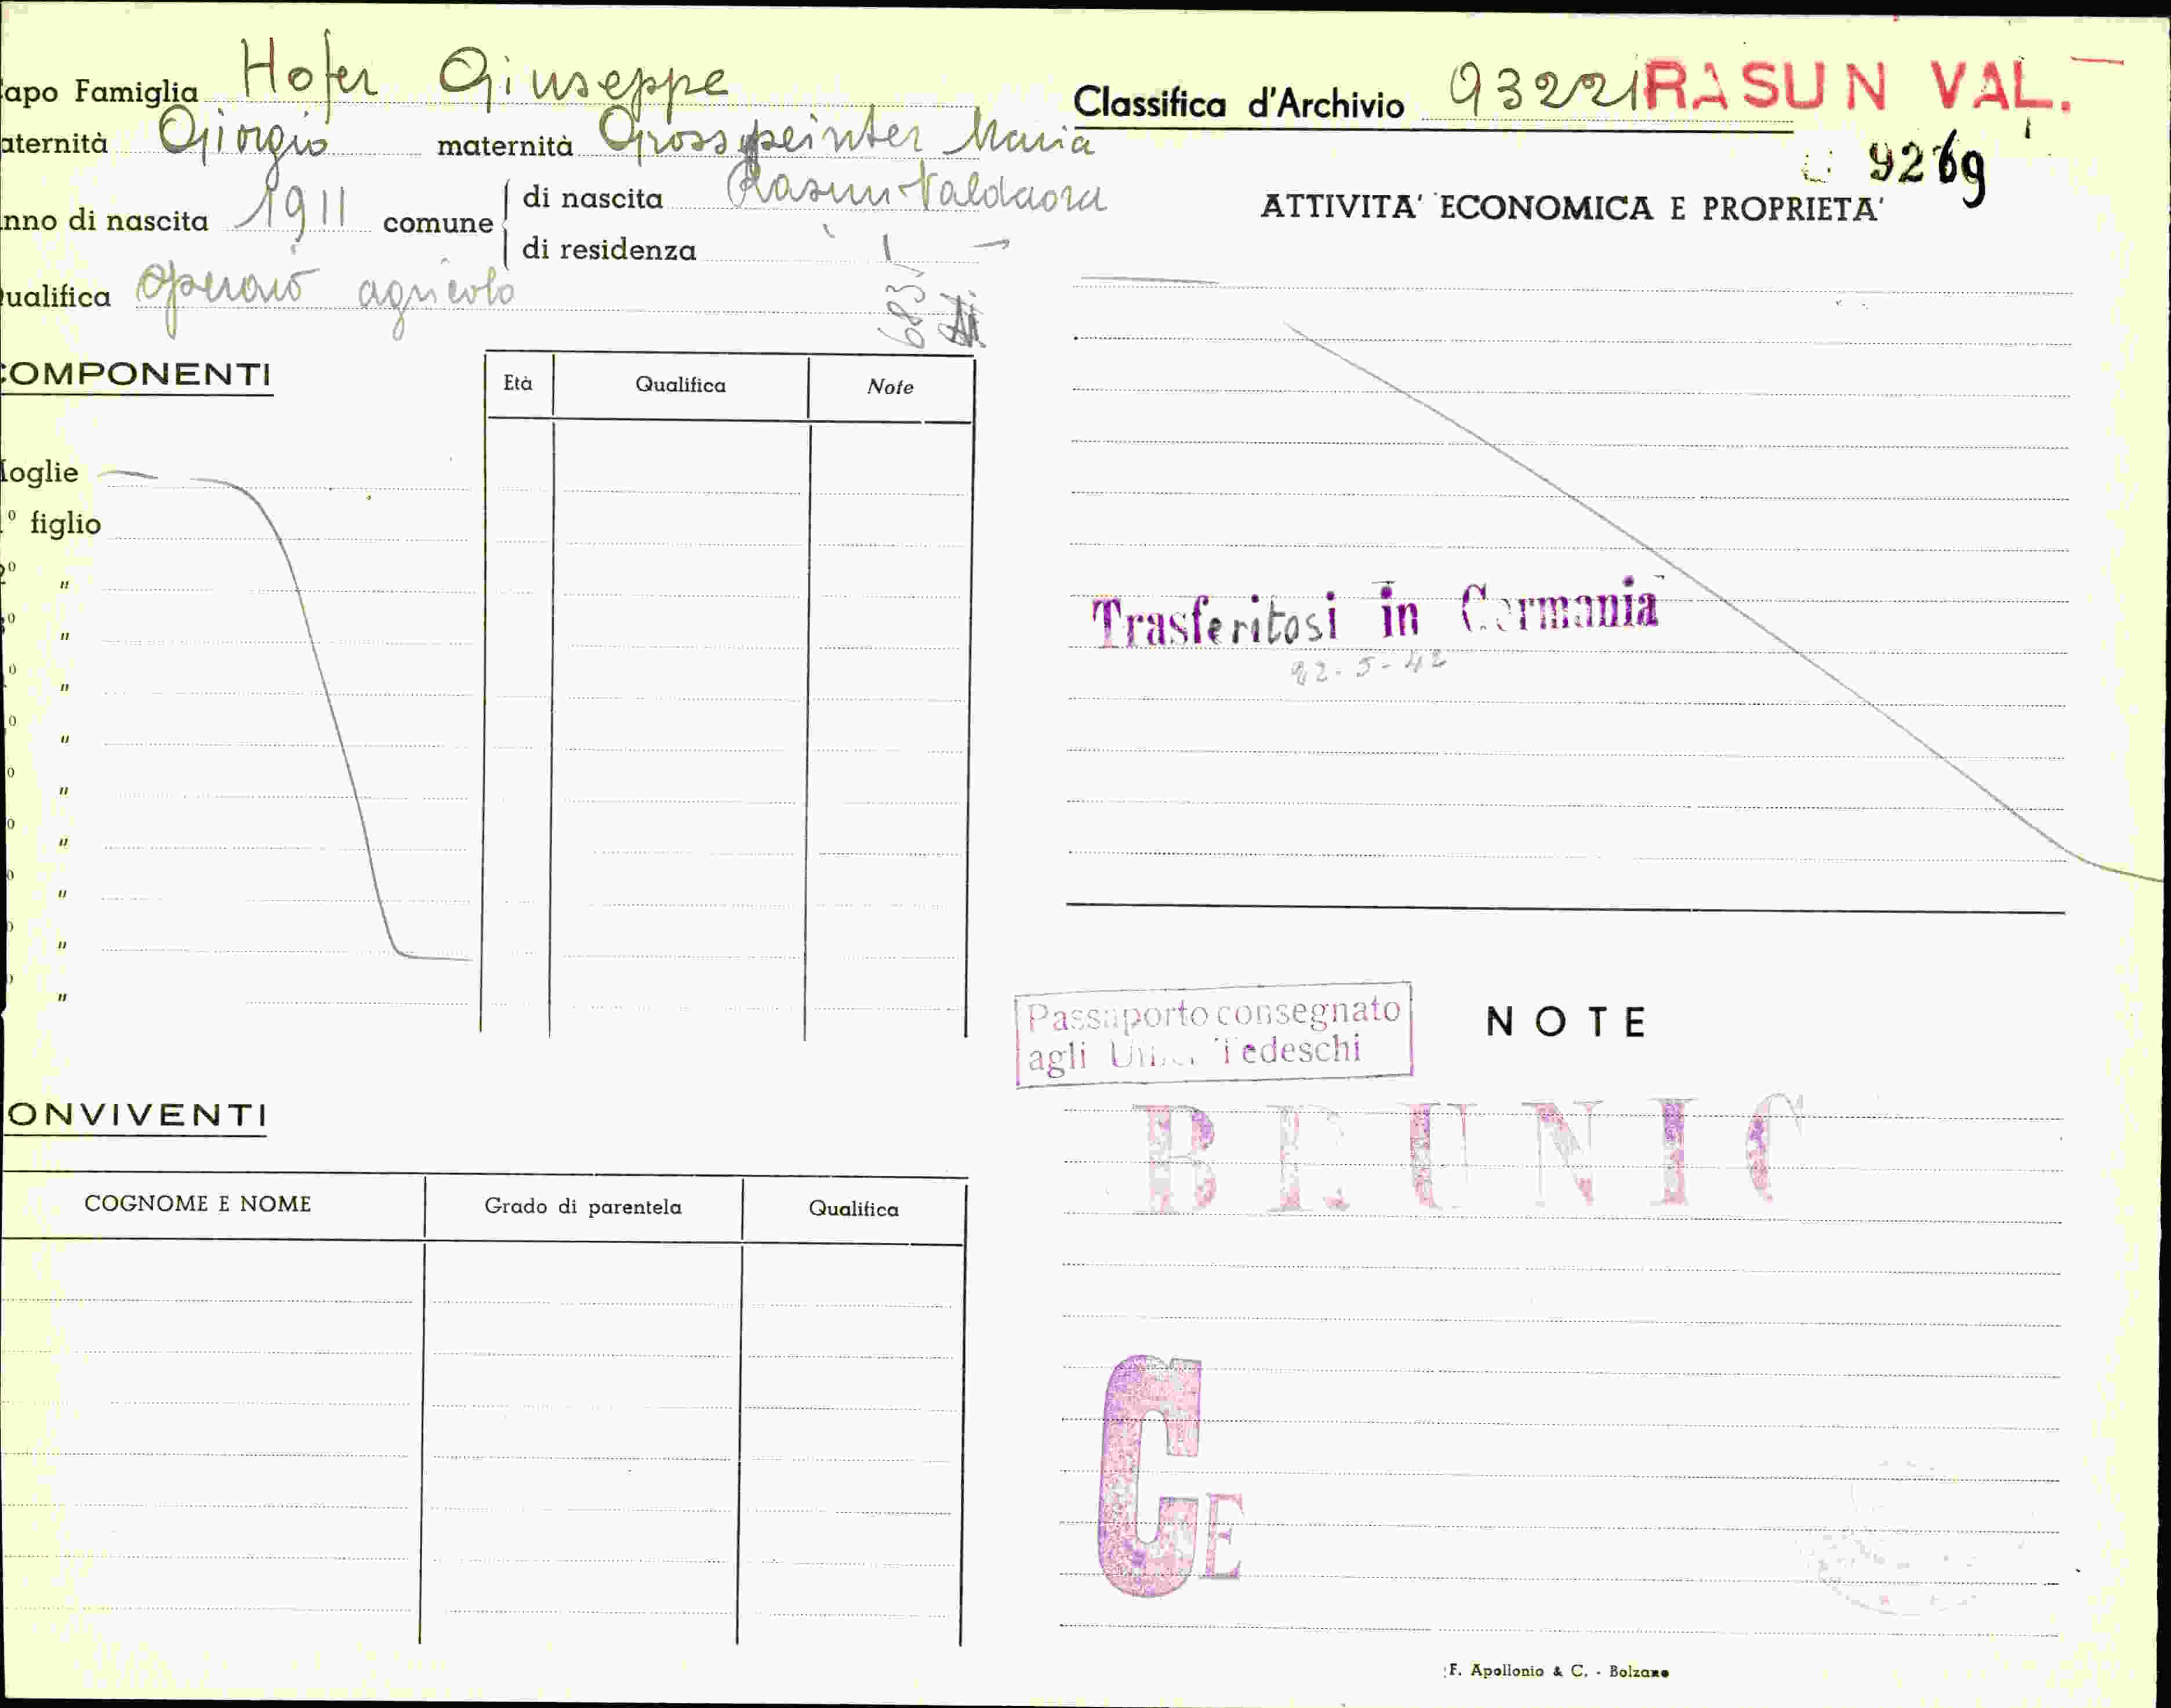 apo Famiglia Hofer Giuseppe
aternità Giorgio maternità Grossgeinter Maria
nno di nascita 1911 comune di nascita Rasun Valdaora
di residenza
ualifica operaio agricolo
683
COMPONENTI
Età Qualifica Note
oglie
º figlio
2º "
º "
º "
º "
º "
º "
º "
º "
º "
ONVIVENTI
COGNOME E NOME Grado di parentela Qualifica
Classifica d'Archivio 93221 RASUN VAL.
9269
ATTIVITA' ECONOMICA E PROPRIETA'
Trasferitosi in Germania
22-5-42
Passaporto consegnato
agli Tedeschi
NOTE
BRUNIC
G E
F. Apollonio & C. - Bolzano